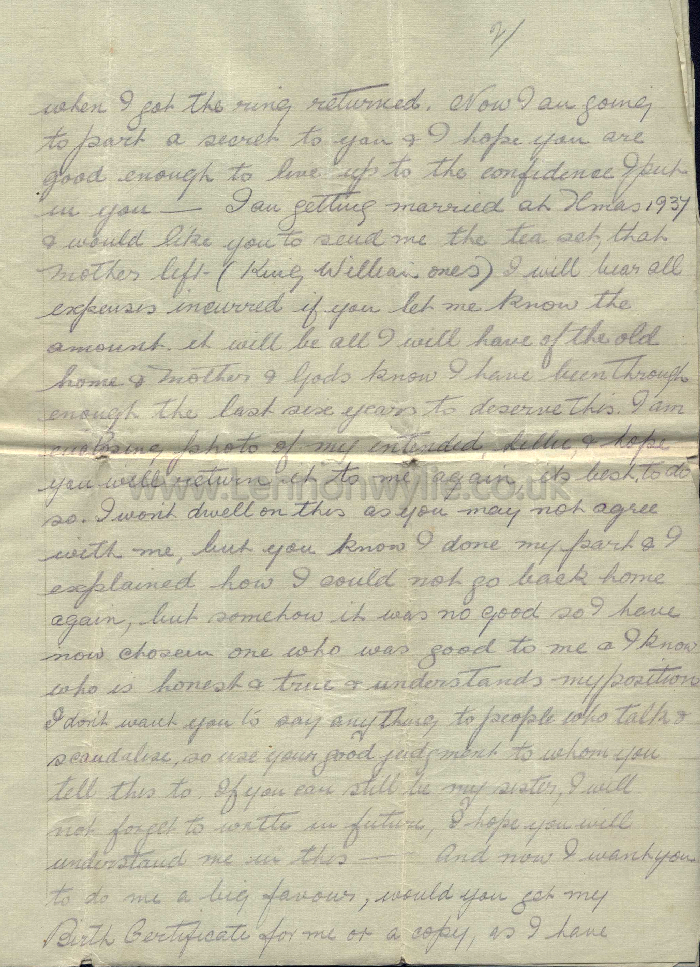 2/
when I got the ring returned. Now I am going
to part a secret to you & I hope you are
good enough to live up to the confidence I put
in you — I am getting married at Xmas 1937
& would like you to send me the tea set, that
Mother left (King William ones) I will bear all
expenses incurred if you let me know the
amount. it will be all I will have of the old
home & Mother & Gods know I have been through
enough the last six years to deserve this. I am
enclosing photo of my intended, & hope
you will return it to me again its best to do
www.Lennonwylie.co.uk
so. I wont dwell on this as you may not agree
with me, but you know I done my part & I
explained how I could not go back home
again, but somehow it was no good so I have
now chosen one who was good to me & I know
who is honest & true & understands my position
I dont want you to say anything to people who talk &
scandalise, so use your good judgment to whom you
tell this to. If you can still be my sister, I will
not forget to write in future, I hope you will
understand me in this — And now I want you
to do me a big favour, would you get my
Birth Certificate for me or a copy, as I have